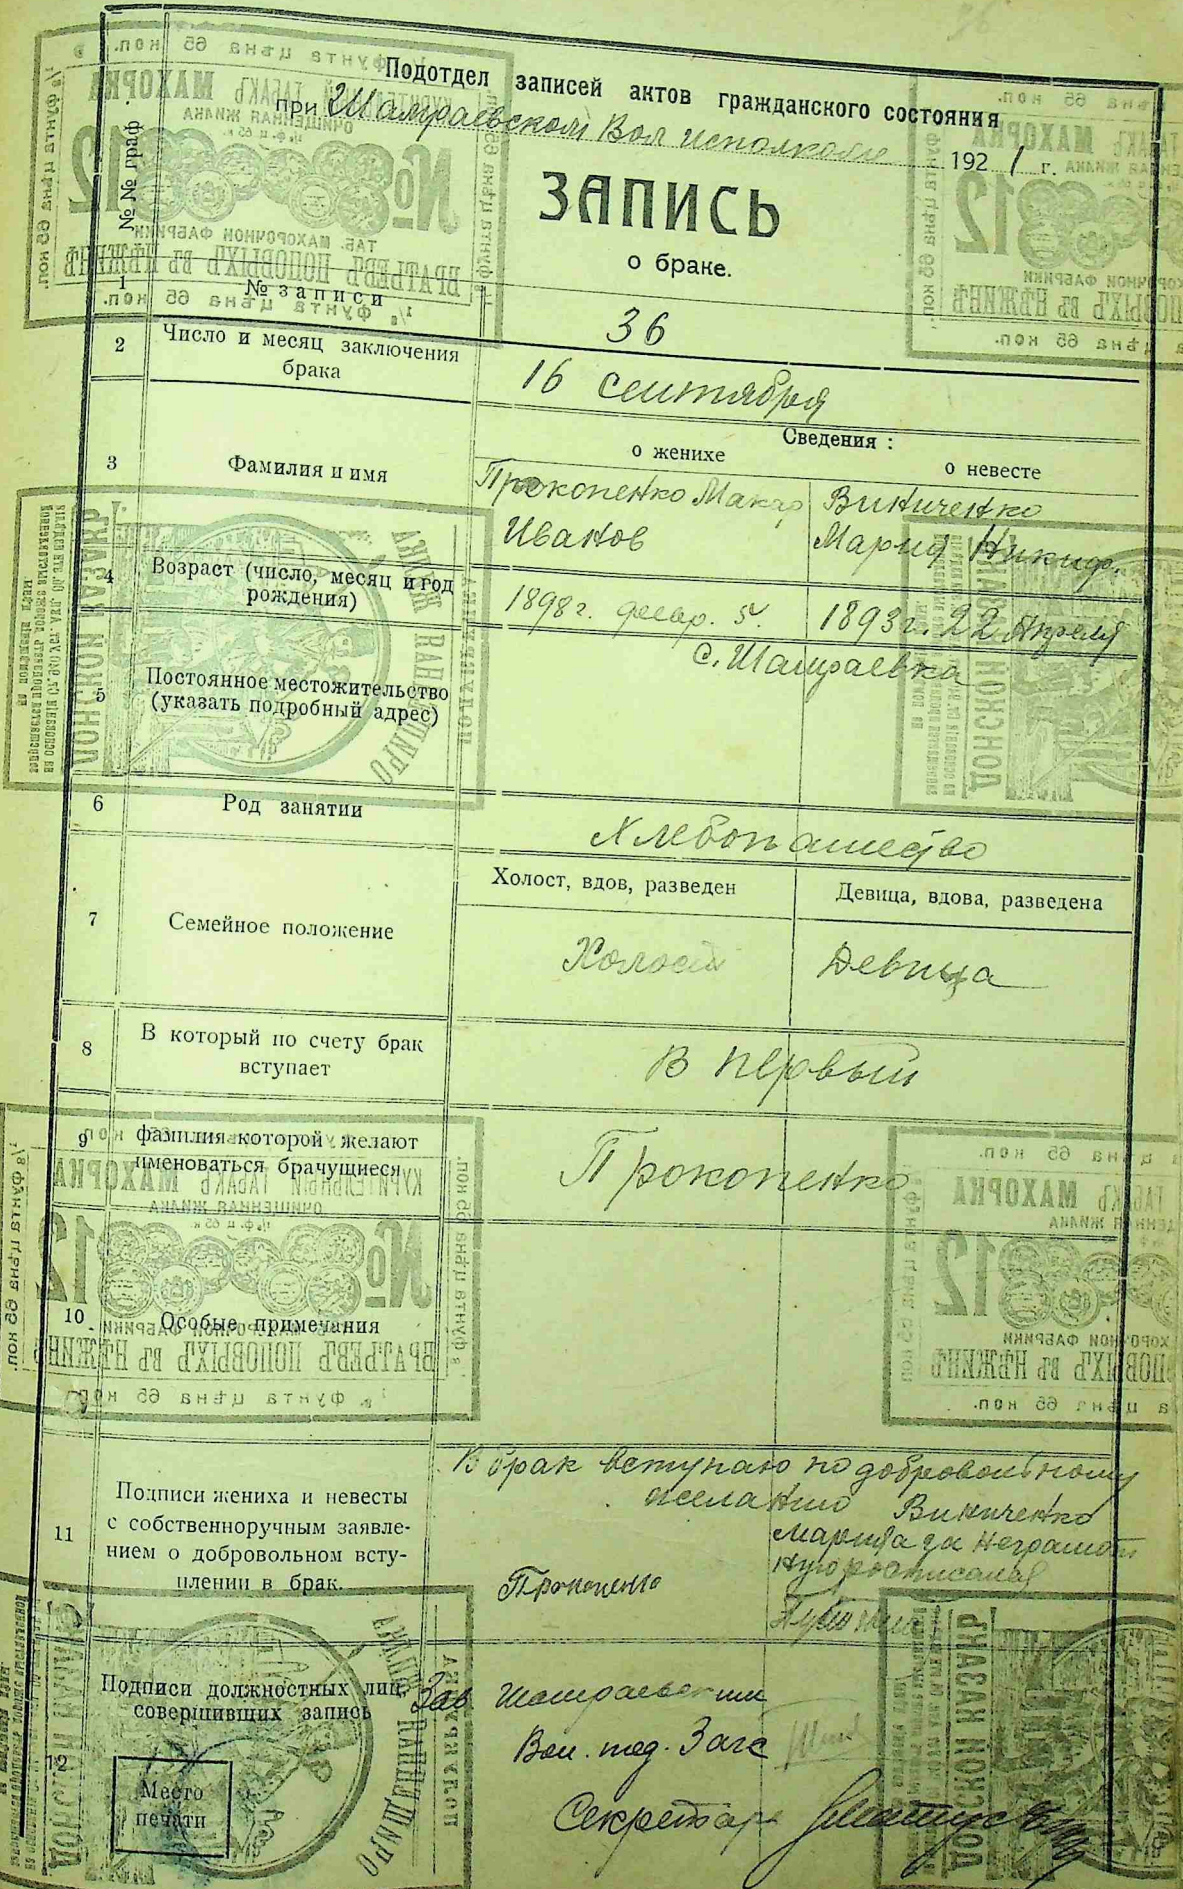 Подотдел записей актов гражданского состояния
при Шамраевском Вол исполкоме 1921 г.
ЗАПИСЬ
о браке.
№№ граф.
1 № записи 36
2 Число и месяц заключения
брака
16 сентября
Сведения:
о женихе о невесте
3 Фамилия и имя
Прокопенко Макар Виниченко
Иванов Мария Никиф.
4 Возраст (число, месяц и год
рождения)
1898 г. февр. 5. 1893 г. 22 Апреля
5 Постоянное местожительство
(указать подробный адрес)
с. Шамраевка
6 Род занятии
Хлебопашество
Холост, вдов, разведен Девица, вдова, разведена
7 Семейное положение
Холост Девица
8 В который по счету брак
вступает
В первый
9 фамилия которой желают
именоваться брачущиеся
Прокопенко
10 Особые примечания
11 Подписи жениха и невесты
с собственноручным заявле-
нием о добровольном всту-
плении в брак.
В брак вступаю по добровольному
желанию Виниченко
за Неграмот
Прокопенко
12 Подписи должностных лиц,
совершивших запись
Зав Шамраевским
Вол. под. Загс
Секретарь
Место
печати
КУРИТЕЛЬНЫЙ ТАБАКЪ МАХОРКА
ОЧИЩЕННАЯ ЖИЛКА
№12
ТАБ. МАХОРОЧНОЙ ФАБРИКИ
БРАТЬЕВЪ ПОПОВЫХЪ ВЪ НѢЖИНѢ
⅛ фунта цѣна 65 коп.
ДОНСКОЙ КАЗАКЪ